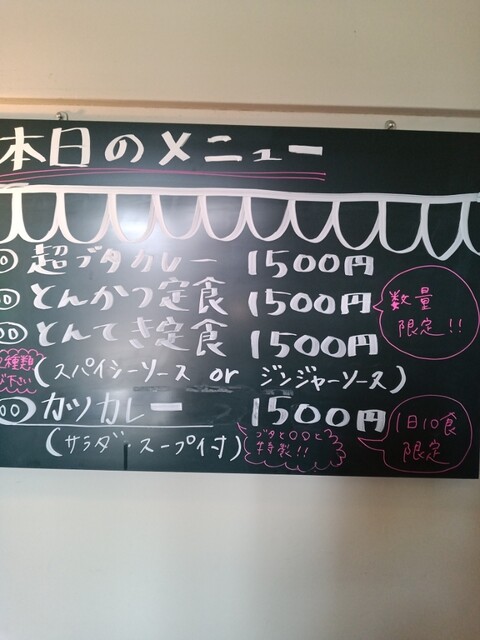 本日のメニュー
超ブタカレー 1500円
とんかつ定食 1500円
数量
限定!!
とんてき定食 1500円
2種類
下さい
(スパイシーソース or ジンジャーソース)
カツカレー 1500円
(サラダ・スープ付)
ブタと〇〇と
特製!!
1日10食
限定